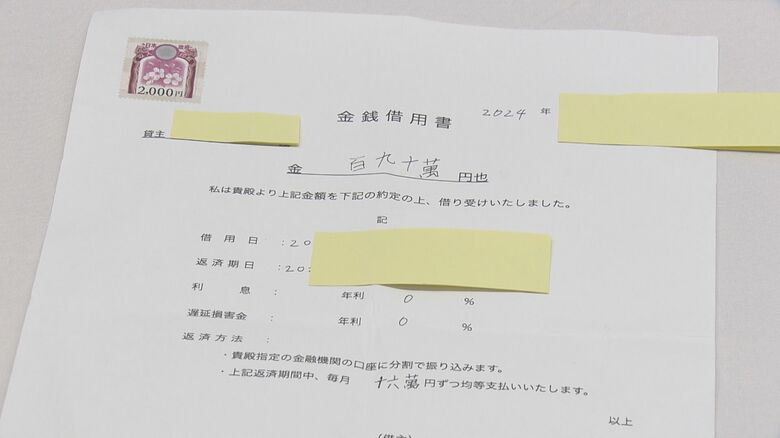 日本 政府
2,000円
金銭借用書
2024 年
貸主
金 百九十萬 円也
私は貴殿より上記金額を下記の約定の上、借り受けいたしました。
記
借用日 :20
返済期日 :20
利息 : 年利 0 %
遅延損害金 : 年利 0 %
返済方法 :
・貴殿指定の金融機関の口座に分割で振り込みます。
・上記返済期間中、毎月 十六萬 円ずつ均等支払いいたします。
以上
(借主)